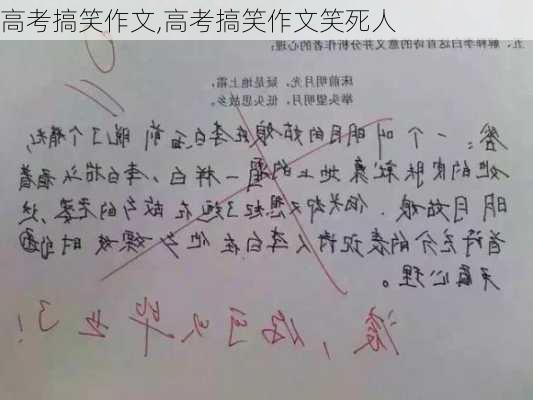 高考搞笑作文,高考搞笑作文笑死人
五、解释李白这首诗的意义并分析作者的心理:
床前明月光，疑是地上霜，
举头望明月，低头思故乡。
答：一个叫明月的姑娘在李白面前脱了个精光，
她的皮肤就象地上的霜一样白，李白抬头看着
明月姑娘，低头却又想起了远在故乡的老婆，这
首诗充分的表现诗人李白在他乡嫖妓时的
矛盾心理。
滚，你可以毕业了！